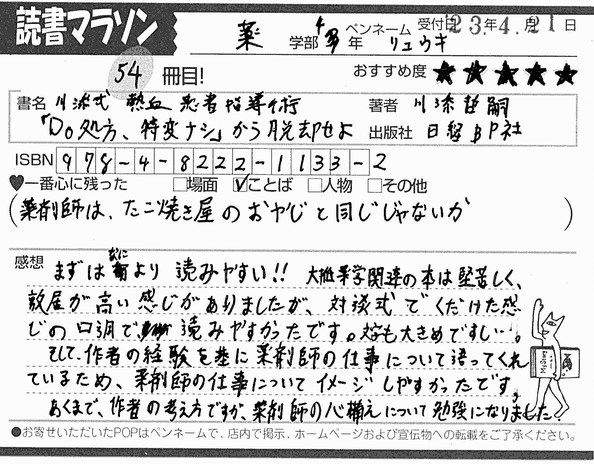 読書マラソン
薬 学部 4 年 ペンネーム リュウキ 受付日 23年4月21日
54 冊目!
おすすめ度 ★★★★★
書名 川添式 熱血 患者指導術
「Do処方、特変ナシ」から脱却せよ
著者 川添哲嗣
出版社 日経BP社
ISBN 978-4-8222-1133-2
♥一番心に残った □場面 ☑ことば □人物 □その他
(薬剤師は、たこ焼き屋のおやじと同じじゃないか)
感想 まずは何より読みやすい!! 大抵薬学関連の本は堅苦しく、
敷居が高い感じがありましたが、対談式でくだけた感
じの口調で読みやすかったです。文字も大きめですし…。
そして、作者の経験を基に薬剤師の仕事について語ってくれ
ているため、薬剤師の仕事についてイメージしやすかったです。
あくまで、作者の考え方ですが、薬剤師の心構えについて勉強になりました
●お寄せいただいたPOPはペンネームで、店内で掲示、ホームページおよび宣伝物への転載をご了承ください。